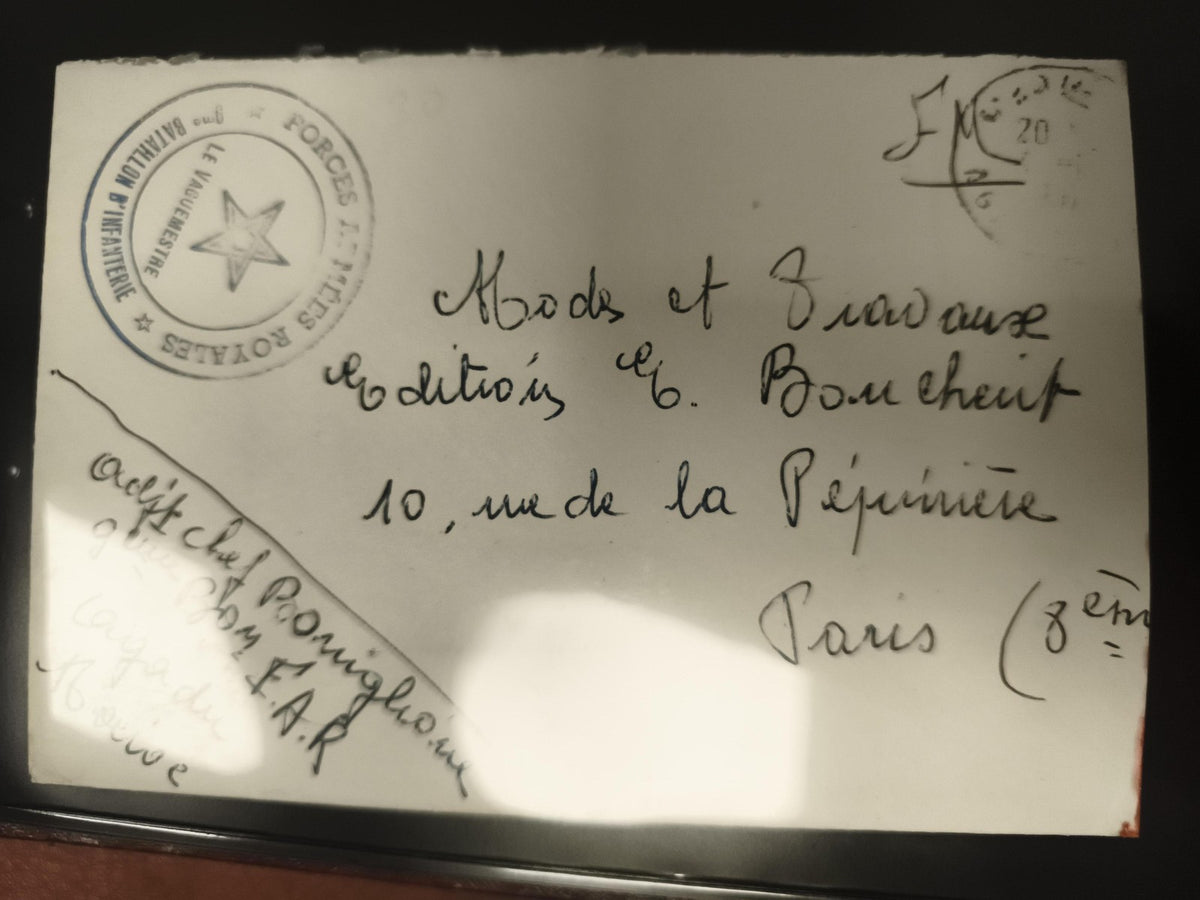 FORCES ARMÉES ROYALES
9me BATAILLON D'INFANTERIE
LE VAGUEMESTRE
F M
20
6
Modes et Travaux
Editions E. Boucherit
10, rue de la Pépinière
Paris (8em
adjt chef
9ième Bon F.A.R
Maroc